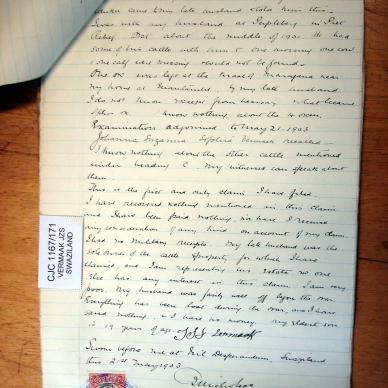 came & my late husband told him this.
I was with my husband at Sepleteleg in Piet
Retief Dist. about the middle of 1901. He had
some of his cattle with him & one morning one cow
& one calf were missing & could not be found.
One ox was left at the Kraal of Marayana near
my home at Mantimbe, by my late husband.
I do not know except from hearsay what became
this ox. I know nothing about the 4 oxen.
Examination adjourned to May 21. 1903
Johanna Suzanna Sophia Vermaak recalled -
I know nothing about the other cattle mentioned
under heading C. My witnesses can speak about
them.
This is the first and only claim I have filed.
I have received nothing mentioned in this claim
and I have been paid nothing, nor have I received
any consideration of any kind on account of my claim.
I had no Military receipts. My late husband was the
sole owner of the cattle & property for which I have
claimed, and I am representing his estate no one
else has any interest in this claim. I am very
poor. My husband was fairly well off before the war.
Everything has been lost during the war, and I have
saved nothing, & I have no money. My eldest son
is 19 years of age. JSS Vermaak
Sworn before me at Nil Desperandum, Swaziland
this 21st May 1903
CJC 1167/171
VERMAAK JZS
SWAZILAND